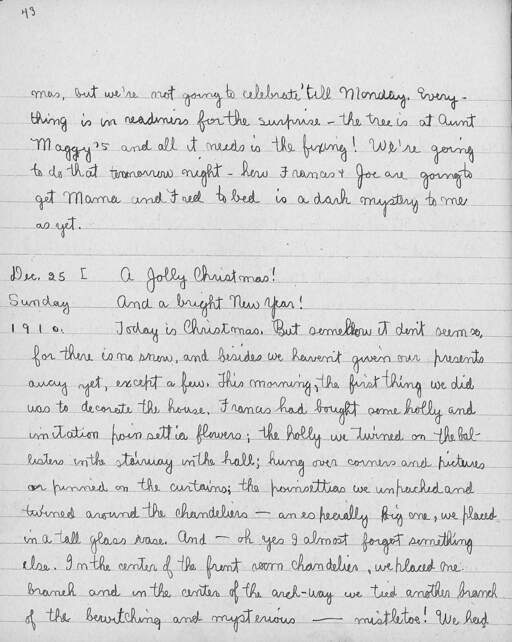 43
mas, but we're not going to celebrate 'till Monday. Every-
thing is in readiness for the surprise - the tree is at Aunt
Maggy's and all it needs is the fixing! We're going
to do that tomorrow night - how Francis & Joe are going to
get Mama and Fred to bed is a dark mystery to me
as yet.
Dec. 25 I A Jolly Christmas!
Sunday And a bright New Year!
1910. Today is Christmas. But somehow it don't seem so,
for there is no snow, and besides we haven't given our presents
away yet, except a few. This morning, the first thing we did
was to decorate the house. Francis had bought some holly and
imitation poinsettia flowers; the holly we twined on the bal-
listers in the stairway in the hall; hung over corners and pictures
or pinned on the curtains; the poinsettias we unpacked and
twined around the chandeliers — an especially big one, we placed
in a tall glass vase. And — oh yes I almost forgot something
else. In the center of the front room chandelier, we placed one
branch and in the center of the arch-way we tied another branch
of the bewitching and mysterious — mistletoe! We had